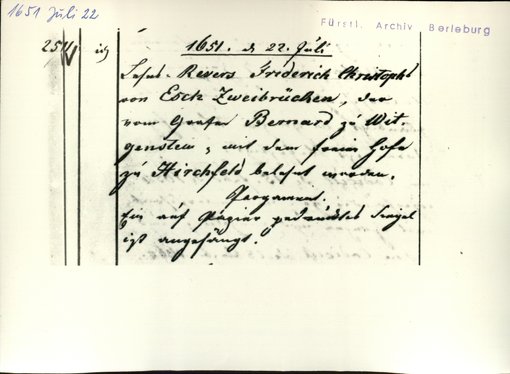 1651 Juli 22
Fürstl. Archiv Berleburg
1651. d. 22. Juli
Lehns-Revers Friderich Christophs
von Esch Zweibrücken, der
vom Grafen Bernard zu Wit-
genstein, mit dem freien Hofe
zu Hirchfeld belehnt worden.
Pergament.
Ein auf Papier gedrucktes Siegel
ist angehängt.